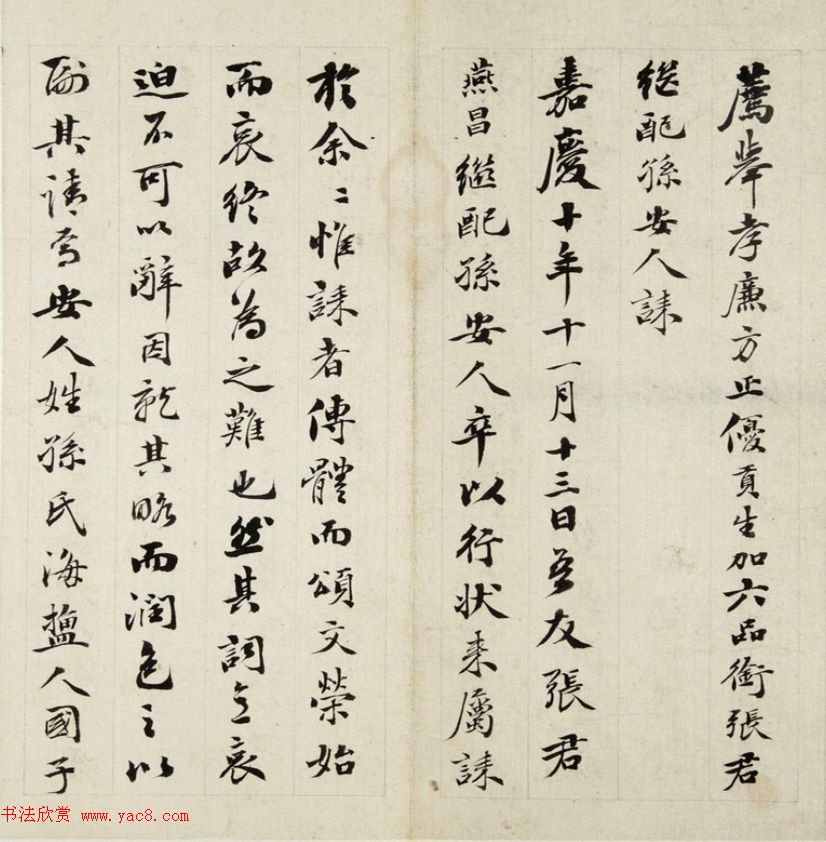 薦舉孝廉方正優貢生加六品銜張君
繼配孫安人誄
嘉慶十年十一月十三日吾友張君
燕昌繼配孫安人卒以行狀来屬誄
於余〻惟誄者傳體而頌文榮始
而哀終故為之難也然其詞立哀
迫不可以辭因就其略而潤色之以
副其請焉安人姓孫氏海鹽人國子
书法欣赏 www.yac8.com